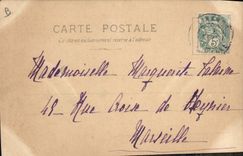 B
CARTE POSTALE
Ce côté est exclusivement réservé à l'adresse
5
Mademoiselle Marguerite
45 Rue Croix de
Marseille